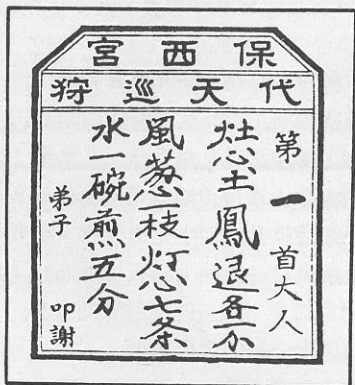 保西宮
代天巡狩
第一首大人
灶心土鳳退各一分
風葱一枝灯心七条
水一碗煎五分
弟子 叩謝